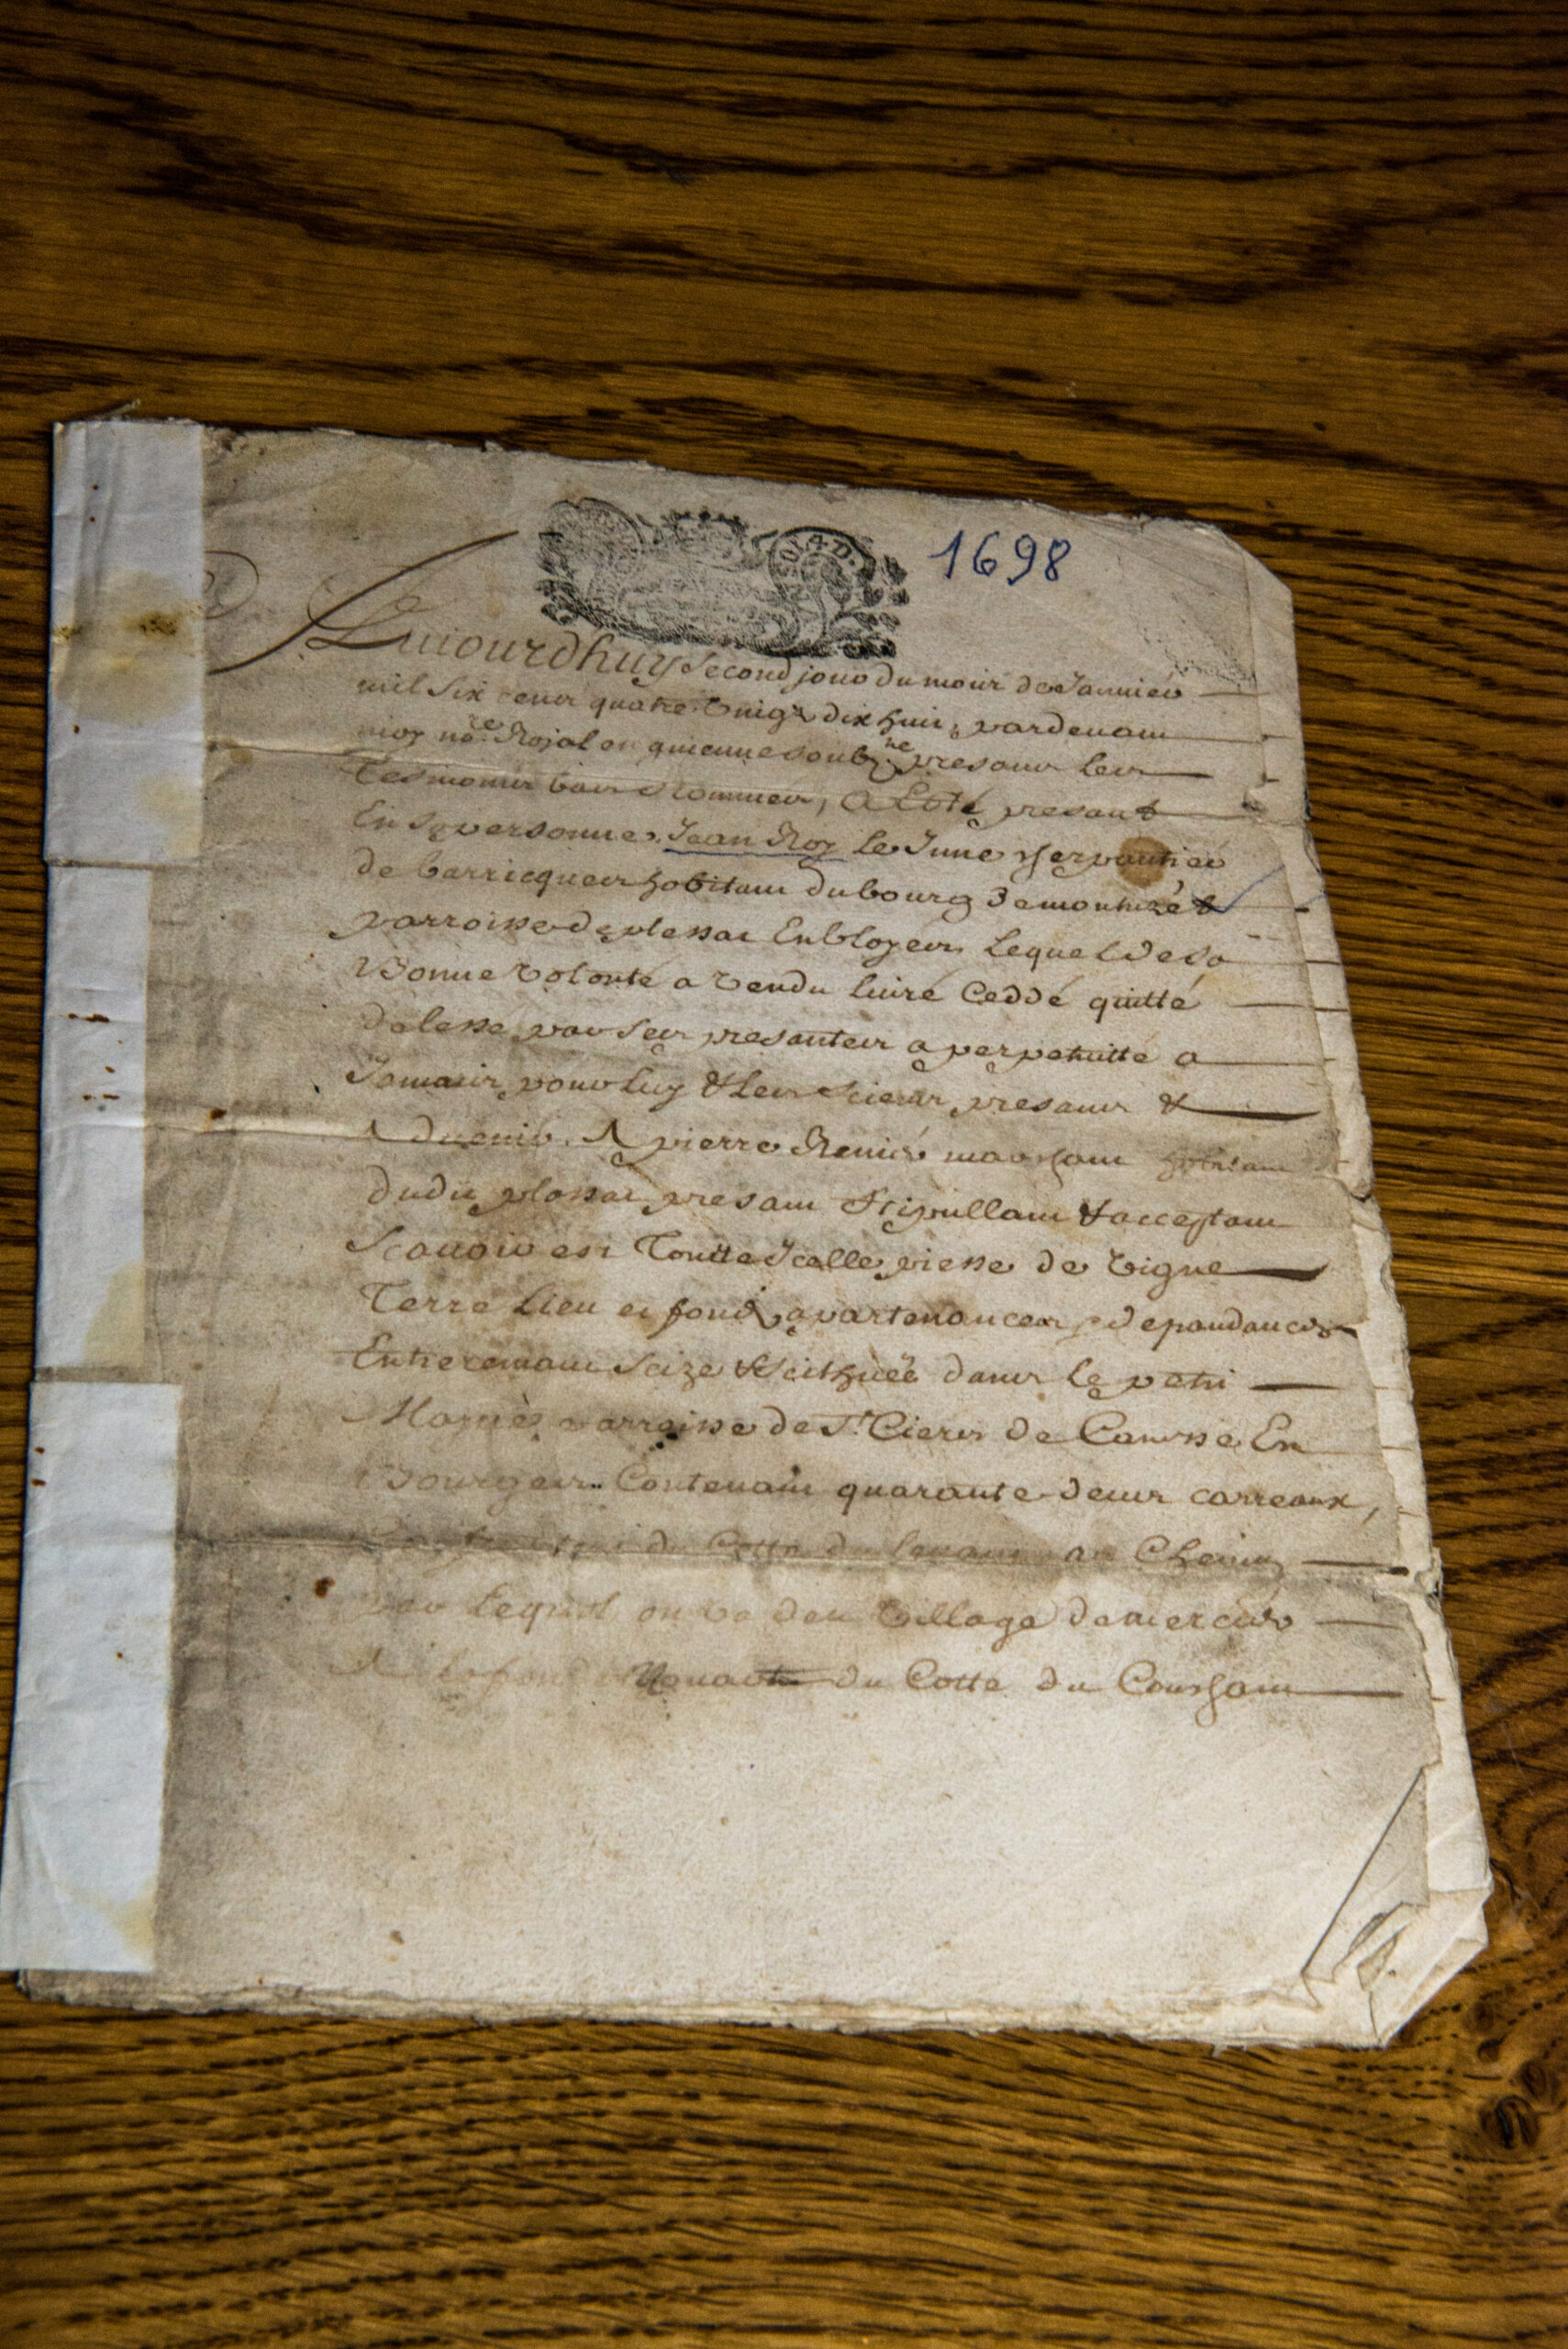 1698
Aujourdhuy Second jour du mois de Janvier
mil Six cens quatre vingt dix huit, pardevant
moy nore Royal en guienne soubzne presans les
Tesmoins bas nommes, a Esté presant
En Sa personne Jean Roy le June
de barricques habitant du bourg de
parroisse de plassac En blayes Lequel de sa
Bonne volonté a vendu livré Ceddé quitté
delessé par Ses presantes a perpetuitté a
Jamais pour luy & les Siens presans &
A Advenir A pierre marchant habitant
dudit plassac presant Stipullant & acceptant
Scavoir est Toutte Icelle piesse de vigne
Terre Lieu et fonds apartenances depandances
Entierement Scize & Scithuée dans le petit
parroisse de St Ciers de Canesse En
Bourges Contenant quarante deux carreaux,
du Cotte du levant au Chemin
par Lequel on va du village de mercier
du Cotte du Couchant